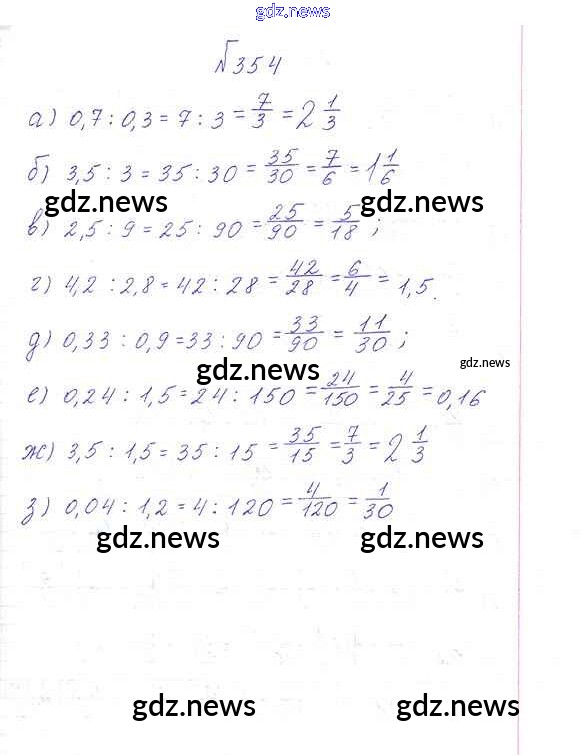 gdz.news
№354
а) 0,7 : 0,3 = 7 : 3 = 7/3 = 2 1/3
б) 3,5 : 3 = 35 : 30 = 35/30 = 7/6 = 1 1/6
gdz.news gdz.news
в) 2,5 : 9 = 25 : 90 = 25/90 = 5/18 ;
г) 4,2 : 2,8 = 42 : 28 = 42/28 = 6/4 = 1,5.
д) 0,33 : 0,9 = 33 : 90 = 33/90 = 11/30 ;
gdz.news gdz.news
е) 0,24 : 1,5 = 24 : 150 = 24/150 = 4/25 = 0,16
ж) 3,5 : 1,5 = 35 : 15 = 35/15 = 7/3 = 2 1/3
з) 0,04 : 1,2 = 4 : 120 = 4/120 = 1/30
gdz.news gdz.news
gdz.news gdz.news